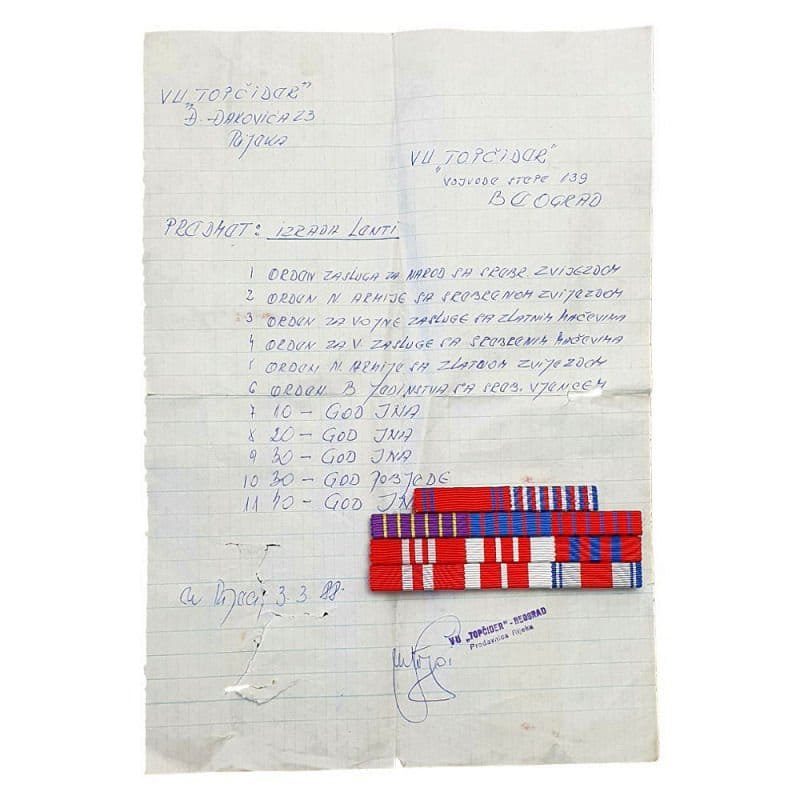 VU "TOPČIDER"
Đ. ĐAKOVIĆA 23
Rijeka
VU "TOPČIDER"
VOJVODE STEPE 139
BEOGRAD
PREDMET: IZRADA LENTI
1 ORDEN ZASLUGA ZA NAROD SA SREBR. ZVIJEZDOM
2 ORDEN N. ARMIJE SA SREBRENOM ZVIJEZDOM
3 ORDEN ZA VOJNE ZASLUGE SA ZLATNIM MAČEVIMA
4 ORDEN ZA V. ZASLUGE SA SREBRENIM MAČEVIMA
5 ORDEN N. ARMIJE SA ZLATNOM ZVIJEZDOM
6 ORDEN B. JEDINSTVA SA SREB. VJENCEM
7 10 - GOD JNA
8 20 - GOD JNA
9 30 - GOD JNA
10 30 - GOD POBJEDE
11 40 - GOD JNA
u Rijeci, 3.3.88.
VU „TOPČIDER" - BEOGRAD
Prodavnica Rijeka